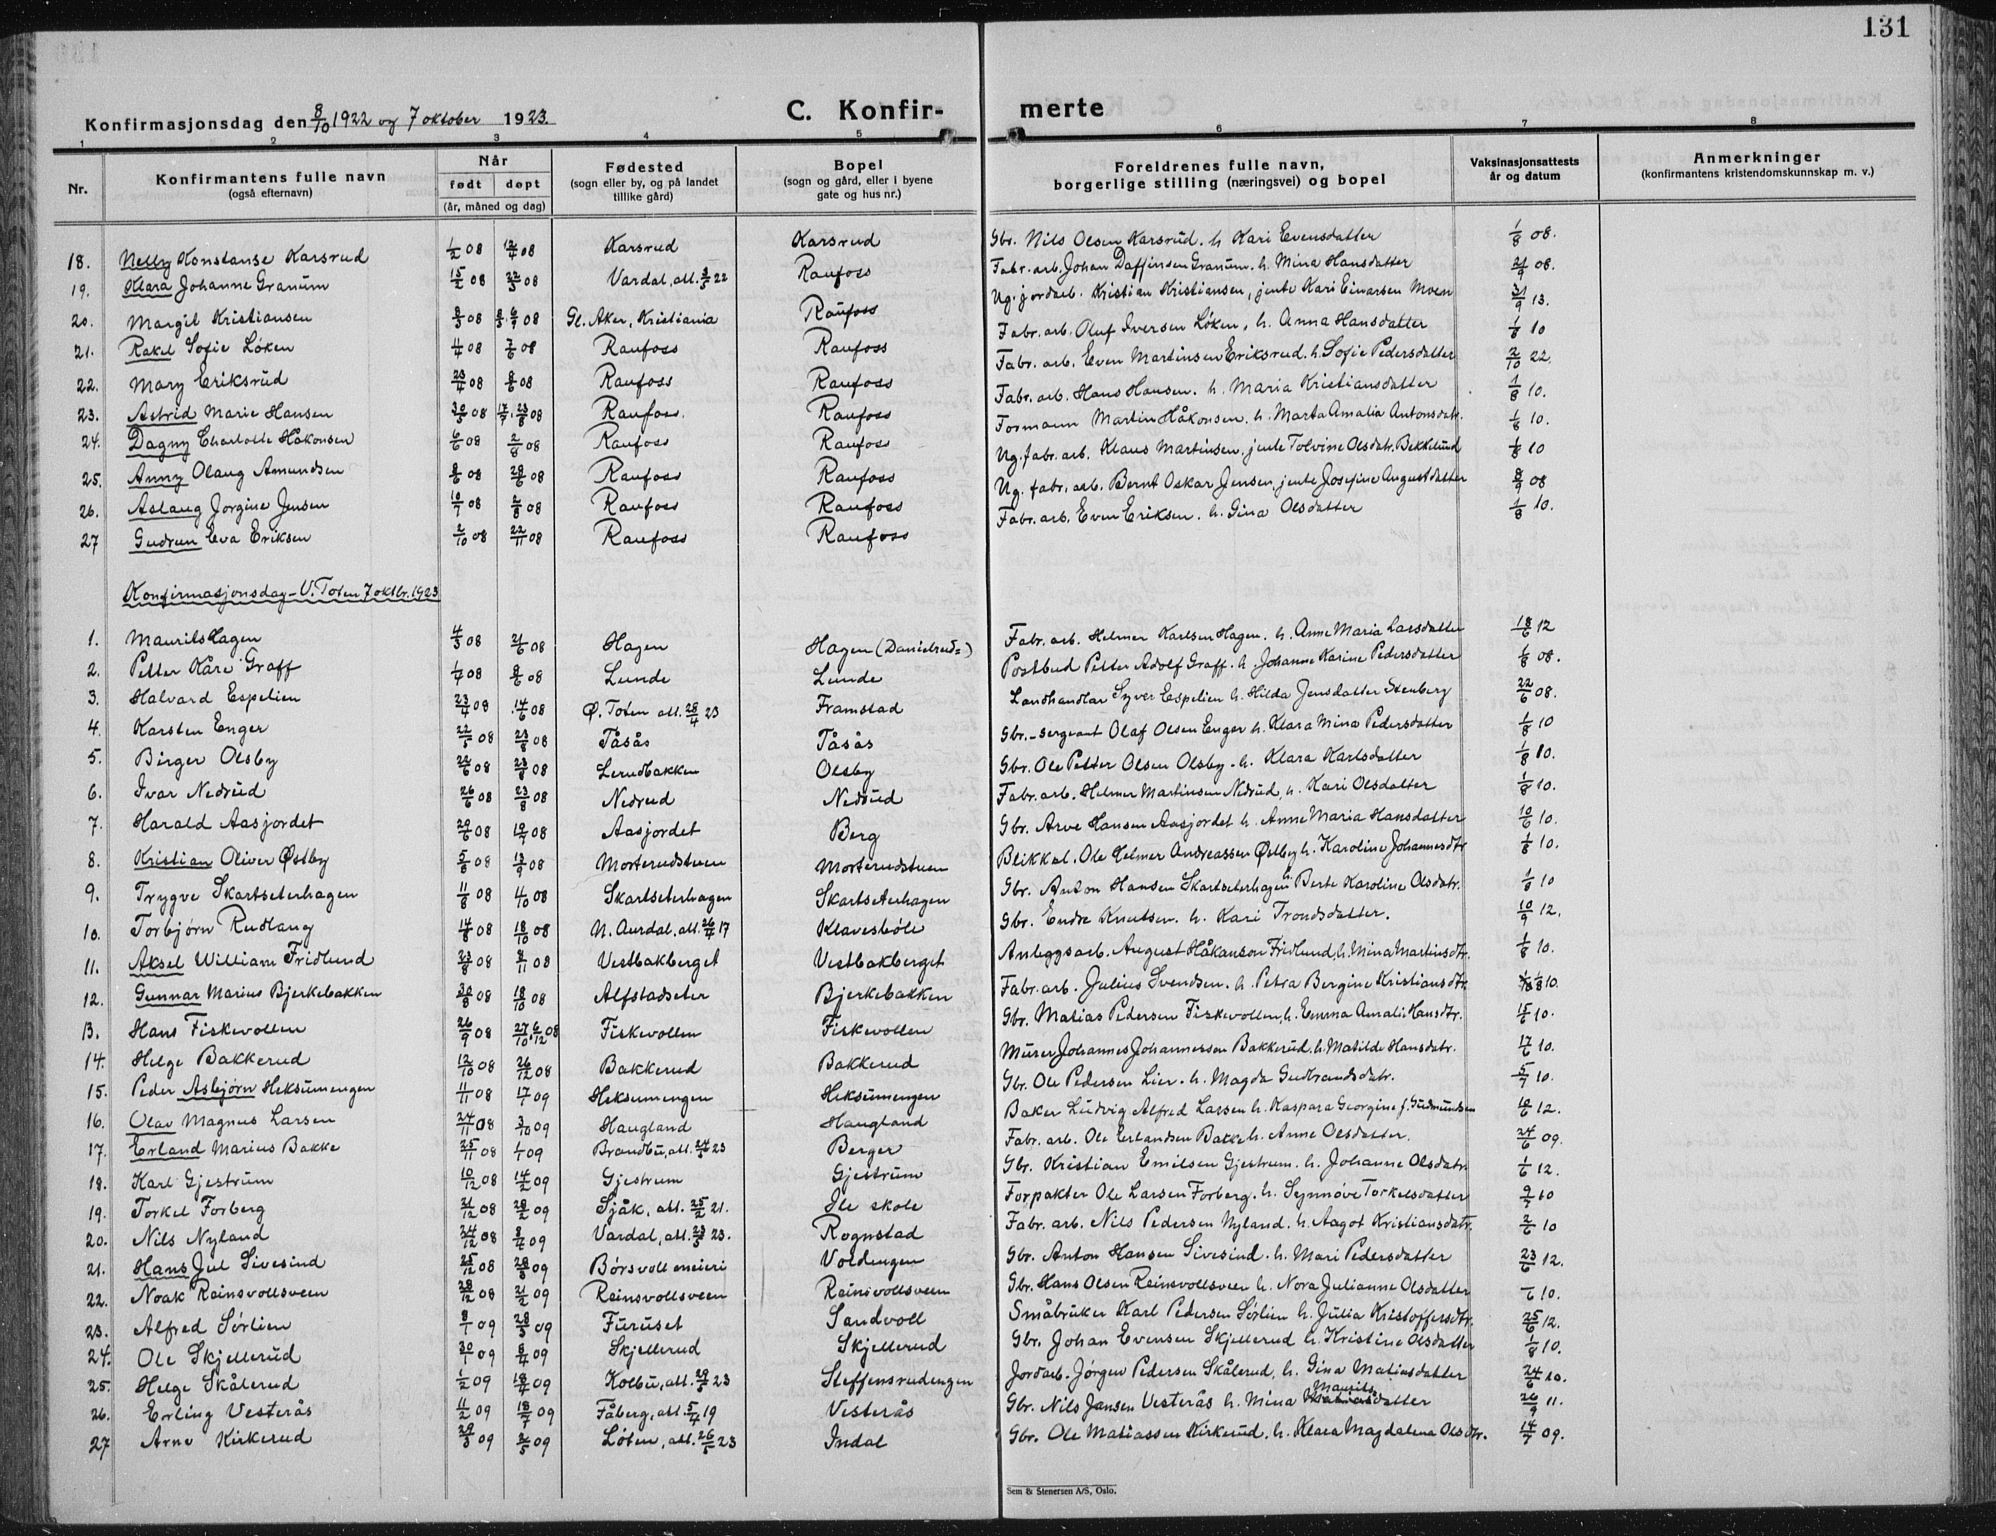 131
Konfirmasjonsdag den 8/10 1922 og 7 oktober 1923.
C. Konfir- merte
1 2 3 4 5 6 7 8
Nr. Konfirmantens fulle navn (også efternavn) Når født døpt (år, måned og dag) Fødested (sogn eller by, og på landet tillike gård) Bopel (sogn og gård, eller i byene gate og hus nr.) Foreldrenes fulle navn, borgerlige stilling (næringsvei) og bopel Vaksinasjonsattests år og datum Anmerkninger (konfirmantens kristendomskunnskap m. v.)
18. Nelly Konstanse Karsrud 1/2 08 12/4 08 Karsrud Karsrud Gbr. Nils Olsen Karsrud. h. Kari Evensdatter 1/8 08.
19. Klara Johanne Granum 15/2 08 22/3 08 Vardal, att. 3/5 22 Raufoss Fabr. arb. Johan Daffinsen Granum. h. Mina Hansdatter 21/9 08.
20. Margit Kristiansen 8/3 08 08 Gl. Aker, Kristiania Raufoss Ug. jordarb. Kristian Kristiansen, jente Kari Einarsen Moen 3/9 13.
21. Rakel Sofie Løken 4/4 08 7/6 08 Raufoss Raufoss Fabr. arb. Oluf Iversen Løken, h. Anna Hansdatter 1/8 10
22. Mary Eriksrud 23/4 08 8/6 08 Raufoss Raufoss Fabr. arb. Even Martinsen Eriksrud. h. Sofie Pedersdatter 2/10 22.
23. Astrid Marie Hansen 30/5 08 17/7. 23/8 08 Raufoss. Raufoss Fabr. arb. Hans Hansen. h. Maria Kristiansdatter 1/8 10.
24. Dagny Charlotte Håkonsen 6/6 08 2/8 08 Raufoss Raufoss Formann Martin Håkonsen. h. Marta Amalia Antonsdatr. 1/8 10.
25. Anny Olaug Amundsen 8/6 08 28/6 08 Raufoss Raufoss Ug. fabr. arb. Klaus Martinsen, jente Tolvine Olsdatr. Bekkelund 1/8 10
26. Aslaug Jorgine Jensen 10/7 08 2/8 08 Raufoss Raufoss Ug. fabr. arb. Bernt Oskar Jensen, jente Josefine Augustdatter 8/9 08
27 Gudrun Eva Eriksen 2/10 08 22/11 08 Raufoss Raufoss Fabr. arb. Even Eriksen. h. Gina Olsdatter 1/8 10.
Konfirmasjonsdag - V. Toten 7 oktbr. 1923
1. Maurits Hagen 4/3 08 21/6 08 Hagen Hagen (Danielsrud=) Fabr. arb. Helmer Karlsen Hagen. h. Anne Maria Larsdatter 18/6 12
2. Petter Kåre Graff 1/4 08 8/6 08 Lunde Lunde Postbud Petter Adolf Graff. h. Johanne Karine Pedersdatter 1/8 08.
3. Halvard Espelien 23/4 08 14/6 08 Ø. Toten att. 28/4 23 Framstad Landhandlar Syver Espelien h. Hilda Jensdatter Stenberg 22/6 08.
4. Karsten Enger 22/5 08 23/8 08 Tåsås Tåsås Gbr. - sergeant Olaf Olsen Enger h. Klara Mina Pedersdatter 1/8 10
5. Birger Olsby 22/6 08 23/8 08 Lerudbakken Olsby Gbr. Ole Petter Olsen Olsby. h. Klara Karlsdatter 1/8 10.
6. Ivar Nedrud 26/6 08 23/8 08 Nedrud Nedrud Fabr. arb. Helmer Martinsen Nedrud, h. Kari Olsdatter 1/8 10.
7. Harald Aasjordet 29/6 08 19/7 08 Aasjordet Berg Gbr. Arve Hansen Aasjordet h. Anne Maria Hansdatter 10/6 10.
8. Kristian Oliver Østby 5/8 08 13/9 08 Morterudstuen Morterudstuen Blikksl. Ole Helmer Andreassen Østby h. Karoline Johannesdtr 1/8 10.
9. Trygve Skartseterhagen 11/8 08 4/10 08 Skartseterhagen Skartseterhagen Gbr. Anton Hansen Skartseterhagen h. Berte Karoline Olsdatr. 1/8 10
10. Torbjørn Rudlang 14/8 08 18/10 08 N. Aurdal, att. 26/4 17 Klavesbøle Gbr. Endre Knutsen. h. Kari Trondsdatter. 10/9 12.
11. Aksel William Fridlund 23/8 08 8/11 08 Vestbakberget Vestbakberget Anleggsarb. August Håkanson Fridlund, h. Mina Martinsdtr. 1/8 10.
12. Gunnar Marius Bjerkebakken 30/8 08 18/10 08 Alfstadseter Bjerkebakken Fabr. arb. Julius Svendsen. h. Petra Bergine Kristiansdtr 1/8 10.
13. Hans Fiskevollen 26/9 08 27/10. 6/12 08 Fiskevollen Fiskevollen Gbr. Matias Pedersen Fiskevollen, h. Emma Amalie Hansdtr. 15/6 10.
14. Helge Bakkerud 12/10 08 26/12 08 Bakkerud Bakkerud Murer Johannes Johannessen Bakkerud. h. Matilde Hansdatr. 17/6 10.
15. Peder Asbjørn Heksumengen 11/11 08 17/1 09 Heksumengen Heksumengen Gbr. Ole Pedersen Lier. h. Magda Gudbrandsdatr. 5/7 10.
16. Olav Magnus Larsen 24/11 08 3/10 09 Haugland Haugland Baker Ludvig Alfred Larsen h. Kaspara Georgine f. Gudmundsen 18/6 12.
17. Erland Marius Bakke 25/11 08 1/1 09 Brandbu, att. 24/5 23 Berger Fabr. arb. Ole Erlandsen Bakke h. Anne Olsdatter. 24/6 09.
18. Karl Gjestrum 10/12 08 14/2 09 Gjestrum Gjestrum Gbr. Kristian Emilsen Gjestrum. h. Johanne Olsdatr. 1/6 12.
19. Torkel Forberg 21/12 08 28/2 09 Sjåk, att. 25/2 21. Ile skole Forpakter Ole Larsen Forberg. h. Synnøve Torkelsdatter 9/7 10
20. Nils Nyland 24/12 08 8/4 09 Vardal, att. 23/5 23. Rognstad Fabr. arb. Nils Pedersen Nyland, h. Aagot Kristiansdatr. 2/6 10
21. Hans Jul Sivesind 25/12 08 28/3 09 Børsvoll meieri Voldengen Gbr. Anton Hansen Sivesind. h. Mari Pedersdatter 23/6 12.
22. Noak Reinsvollsveen 28/12 08 21/2 09 Reinsvollsveen Reinsvollsveen Gbr. Hans Olsen Reinsvollsveen h. Nora Julianne Olsdatter -/6 10.
23. Alfred Sørlien 8/1 09 28/3 09 Furuset Sandvoll Småbruker Karl Pedersen Sørlien h. Julia Kristoffersdtr. 25/6 12.
24. Ole Skjellerud 30/1 09 8/4 09 Skjellerud Skjellerud Gbr. Johan Evensen Skjellerud h. Kristine Olsdatter 1/8 10.
25. Helge Skålerud 1/2 09 18/4 09 Kolbu, att. 29/5 23 Steffensrudengen Jordarb. Jørgen Pedersen Skålerud, h. Gina Matiasdatter 24/6 10.
26. Erling Vesterås 11/2 09 18/7 09 Fåberg, att. 5/4 19 Vesterås Gbr. Nils Jansen Vesterås h. Mina Mauritsdatter 26/9 11.
27 Arne Kirkerud 29/3 09 2/5 09 Løten, att. 26/5 23 Indal Gbr. Ole Matiassen Kirkerud. h. Klara Magdalena Olsdtr. 14/7 09.
Sem & Stenersen A/S, Oslo.